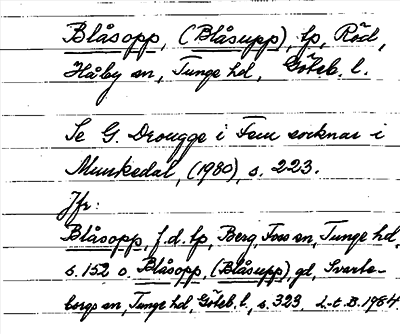 Blåsopp, (Blåsupp), tp, Röd,
Håby sn, Tunge hd, Göteb. l.
Se G. Drougge i Fem socknar i
Munkedal, (1980), s. 223.
Jfr:
Blåsopp, f.d. tp, Berg, Foss sn, Tunge hd,
s. 152 o. Blåsopp, (Blåsupp), gd, Svarte-
bergs sn, Tunge hd, Göteb. l., s. 323. L-e. B. 1984.